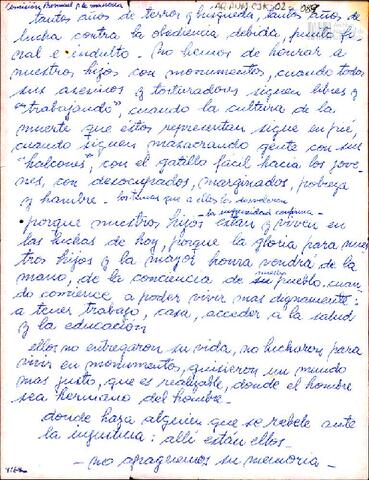 Comisión Promonument p la memoria
AR ANM CJK 02 - 089
tantos años de terror y busqueda, tantos años de
lucha contra la obediencia debida, punto fi
nal e indulto. No hemos de honrar a
nuestros hijos con monumentos, cuando todos
sus asesinos y torturadores siguen libres y
"trabajando", cuando la cultura de la
muerte que estos representan sigue en pié,
cuando siguen masacrando gente con sus
"halcones", con el gatillo fácil hacia los jove-
nes, con desocupados, marginados, pobreza
y hambre -
- porque nuestros hijos estan y viven en
las luchas de hoy, porque la gloria para nues
tros hijos y la mayor honra vendrá de la
mano, de la conciencia de nuestro pueblo, cuan
do comience a poder vivir mas dignamente:
a tener trabajo, casa, acceder a la salud
y la educación
ellos no entregaron su vida, no lucharon, para
vivir en monumentos, quisieron un mundo
mas justo, que es realizable, donde el hombre
sea hermano del hombre -
donde haya alguien que se rebele ante
la injusticia: allí están ellos -
- no apaguemos su memoria -